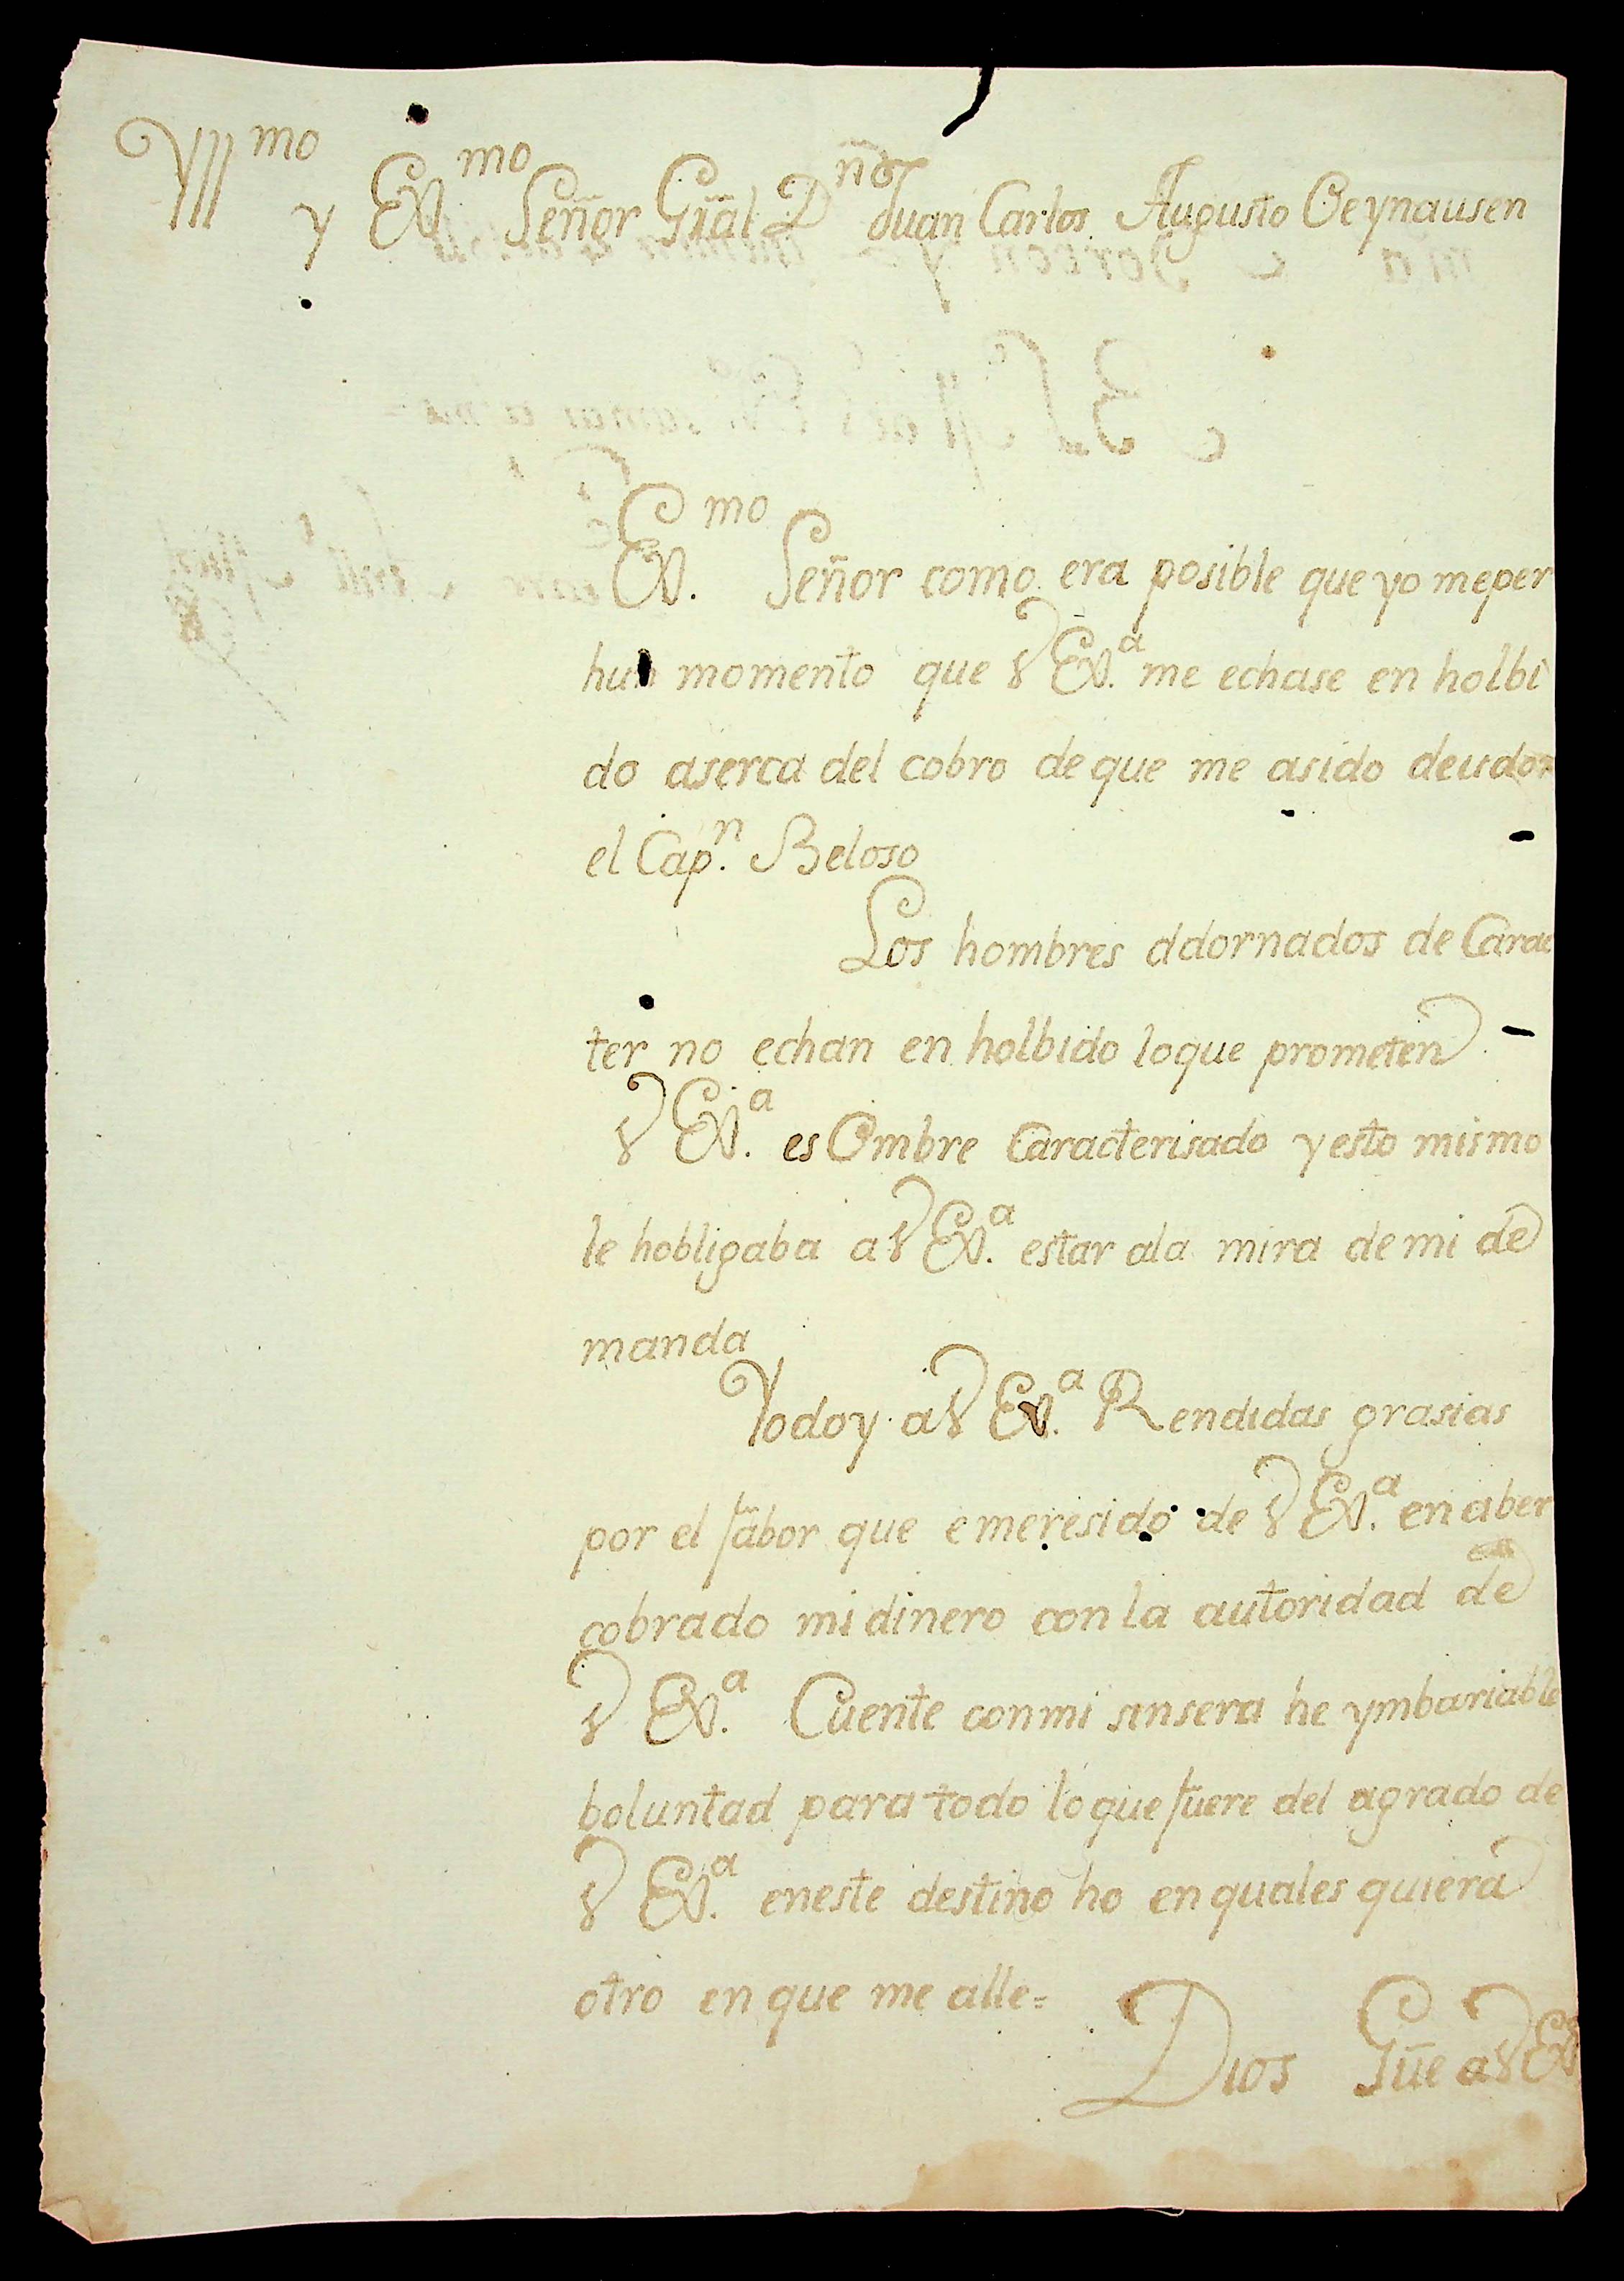 Yll.mo y Ex.mo Señor Grãl Dn. Juan Carlos Augusto Oeynausen
Ex.mo Señor como era posible que yo meper
hun momento que V Ex.a me echase en holbi
do aserca del cobro de que me asido deudor
el Cap.n Beloso
Los hombres adornados de Carac
ter no echan en holbido loque prometen
V Ex.a es Ombre Caracterisado y esto mismo
le hobligaba a V Ex.a estar ala mira de mi de
manda
Yodoy a V Ex.a Rendidas grasias
por el fabor que e meresido de V Ex.a en aber
cobrado mi dinero con la autoridad de
V Ex.a Cuente conmi sinsera he ymbariable
boluntad para todo loque fuere del agrado de
V Ex.a eneste destino ho en quales quiera
otro en que me alle=
Dios Gũe a V Ex.a